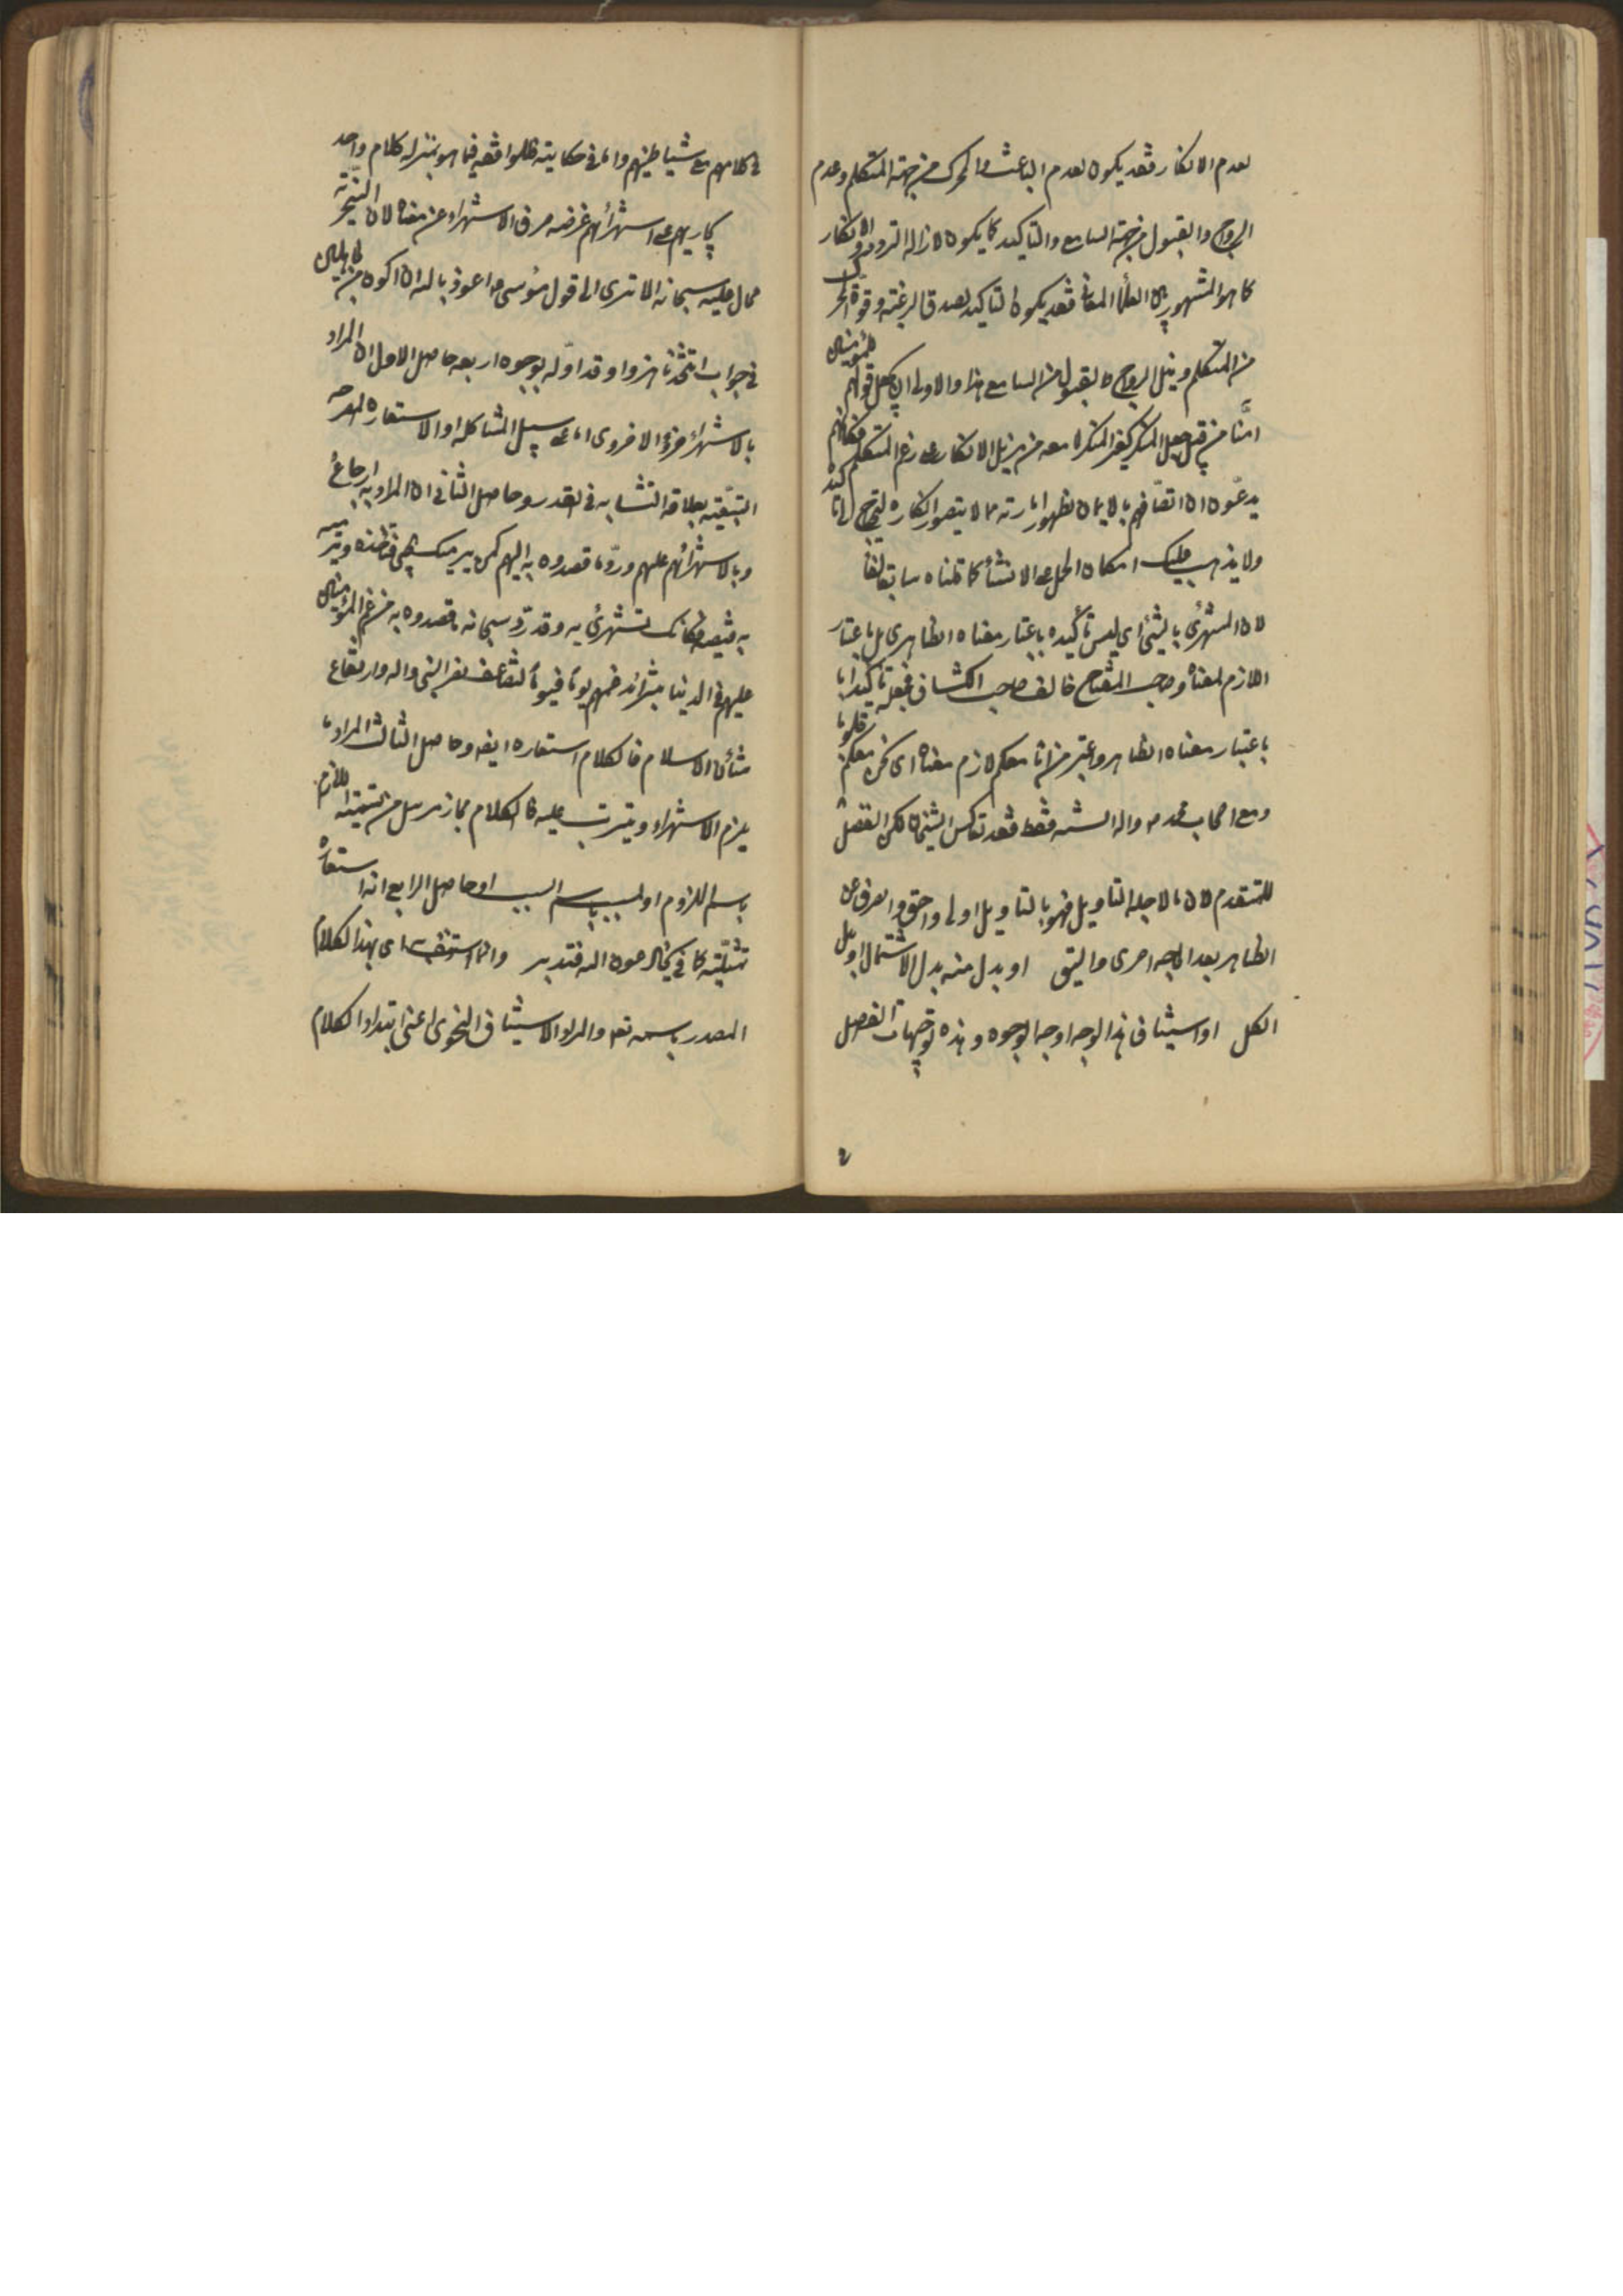 لعدم الانكار فقد يكون لعدم الباعث والمحرك من جهة المتكلم وعدم
الرواج والقبول من جهة السامع والتاكيد كما يكون لازالة التردد والانكار
كما هو المشهور بين العلماء المعاني فقد يكون التاكيد لصدق الرغبة وقوة
من المتكلم ونيل الرواج والقبول من السامع هذا والاولى ان يجعل قولهم للمؤمنين
امنّا من قبيل جعل المنكر كغير المنكر اذا معه من يزيل الانكار على زعم المتكلم فكانهم
يدعون ان اتصافهم بالايمان لظهور امارته مما لا يتصور انكاره ليحتاج الى تاكيد
ولا يذهب عليك امكان الحمل على الانشاء كما قلناه سابقا
لان المستهزئ بالشئ اى ليس تأكيده باعتبار معناه الظاهرى بل باعتبار
اللازم لمعناه وصاحب المفتاح خالف صاحب الكشاف فجعله تأكيدا
باعتبار معناه الظاهر واعتبر من انا معكم لازم معناه اى نحن معكم قلوبا
ومع اصحاب محمد ص واله السنه فقط فقد تعاكس الشيخان لكن الفضل
للمتقدم لان ما لاجله التاويل فهو بالتاويل اولى واحق والصرف عن
الظاهر بعد الحاجه احرى واليق او بدل منه بدل الاشتمال او بدل
الكل او استيناف هذا الوجه اوجه الوجوه وهذه توجيهات الفصل
في كلامهم مع شياطينهم واما في حكايته فلموافقه فيما هو بمنزلة كلام واحد
يجازيهم على استهزائهم غرضه صرف الاستهزاء عن معناه لان السخرية
محال عليه سبحانه الا ترى الى قول موسى ع اعوذ بالله ان اكون من الجاهلين
في جواب اتتخذنا هزوا وقد اوّله بوجوه اربعه حاصل الاول ان المراد
بالاستهزاء جزاؤه الاخروى اما على سبيل المشاكله او الاستعاره المصرحه
التبعيّة بعلاقة التشابه في القدر وحاصل الثاني ان المراد به ارجاع
وبال استهزائهم عليهم وردّ ما قصدوه به اليهم كمن يرميك بشئ
به فيصيبه فكانك تستهزئ به وقد ردّ سبحانه ما قصدوه به من غم المؤمنين
عليهم في الدنيا بتزائد غمهم يوما فيوما لتضاعف نصر النبى واله وارتفاع
شأن الاسلام فالكلام استعاره ايضا وحاصل الثالث المراد ما
يلزم الاستهزاء ويترتب عليه فالكلام مجاز مرسل من تسمية اللازم
باسم الملزوم او المسبب باسم السبب او حاصل الرابع انه استعاره
تمثيليّه كما في يخادعون الله فتدبر وانما استونف اى بهذا الكلام
المصدر باسمه تعالى والمراد الاستيناف النحوى اعنى ابتداء الكلام